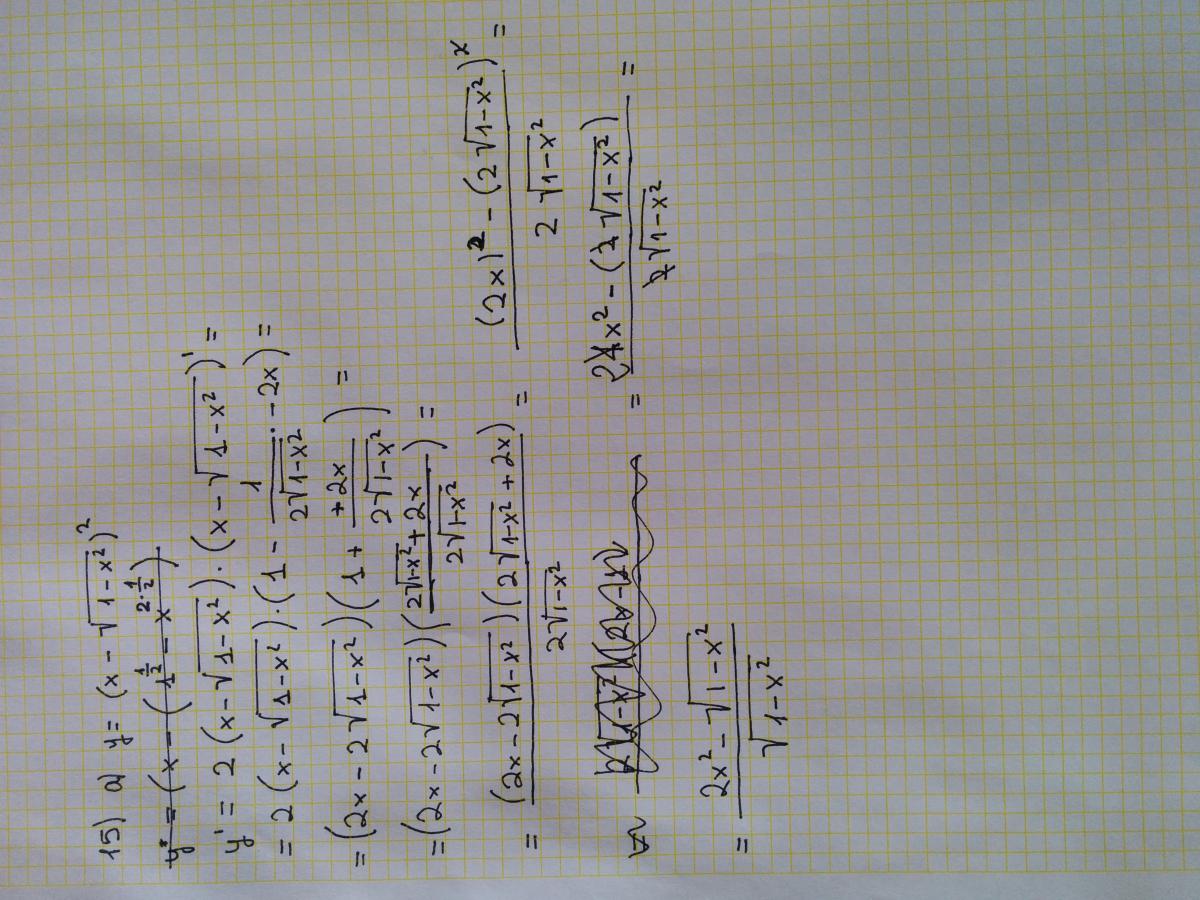 15) a) y = (x - √(1-x²))²
y' = (x - (1^(1/2) - x^(2·1/2))
y' = 2 (x - √(1-x²)) · (x - √(1-x²))' =
= 2 (x - √(1-x²)) · (1 - 1/(2√(1-x²)) · -2x) =
= (2x - 2√(1-x²)) (1 + +2x/(2√(1-x²))) =
= (2x - 2√(1-x²)) ((2√(1-x²) + 2x)/(2√(1-x²))) =
= ((2x - 2√(1-x²)) (2√(1-x²) + 2x))/(2√(1-x²)) = ((2x)² - (2√(1-x²))²)/(2√(1-x²)) =
= (2x² - (2√(1-x²)))/(2√(1-x²)) =
= (2x² - √(1-x²))/√(1-x²)